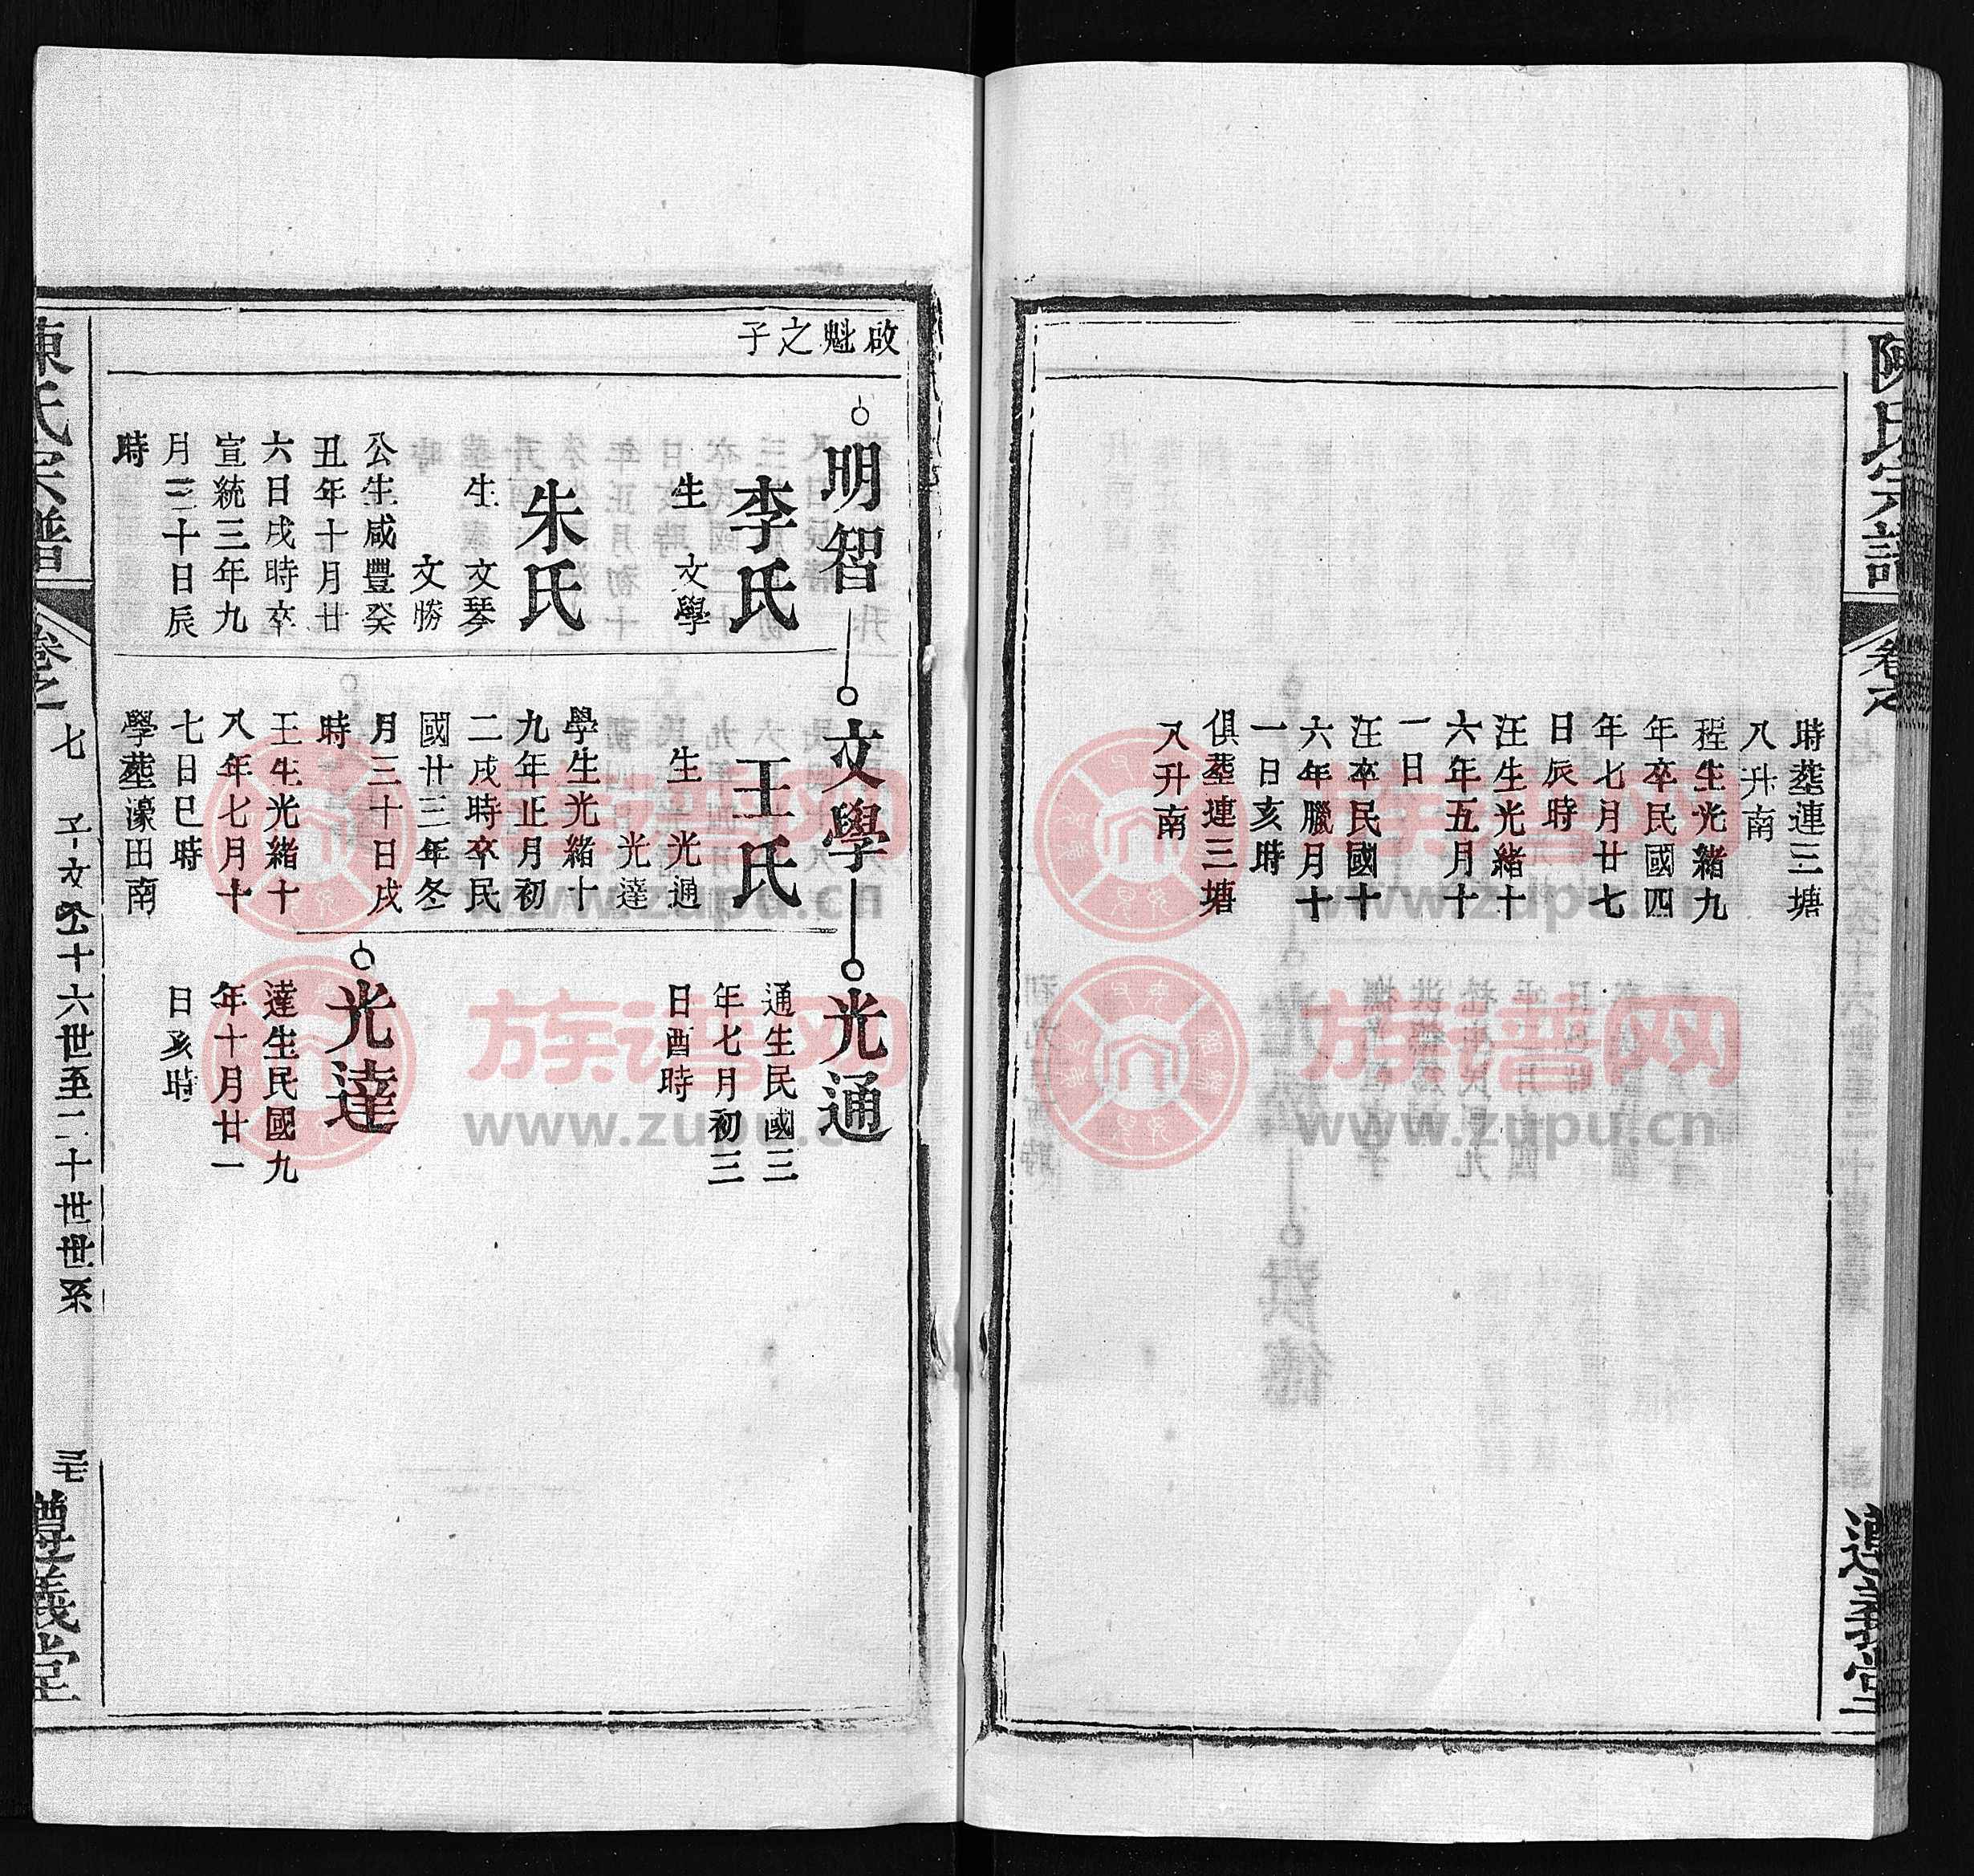 陳氏宗譜
卷之
遵義堂
時塟連三塘
八升南
程生光緒九
年卒民國四
年七月廿七
日辰時
汪生光緒十
六年五月十
一日
汪卒民國十
六年臘月十
一日亥時
俱塟連三塘
八升南
啟魁之子
明智
李氏
生
文學
朱氏
生
文琴
文勝
公生咸豐癸
丑年十月廿
六日戌時卒
宣統三年九
月三十日辰
時
文學
王氏
生
光通
光達
學生光緒十
九年正月初
二戌時卒民
國廿三年冬
月三十日戌
時
王生光緒十
八年七月十
七日巳時
學塟濠田南
光通
通生民國三
年七月初三
日酉時
光達
達生民國九
年十月廿一
日亥時
陳氏宗譜
卷之
七
子文公十六世至二十世世系
遵義堂
族谱网
www.zupu.cn
族谱网
www.zupu.cn
族谱网
www.zupu.cn
族谱网
www.zupu.cn